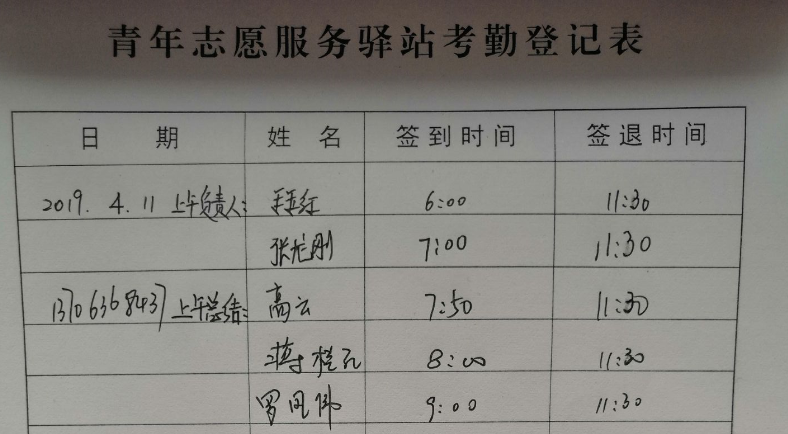 青年志愿服务驿站考勤登记表
日 期 姓 名 签到时间 签退时间
2019. 4. 11 上午负责人: 红 6:00 11:30
张龙刚 7:00 11:30
13706368437 上午总结: 高云 7:50 11:30
蒋 8:00 11:30
罗凤伟 9:00 11:30